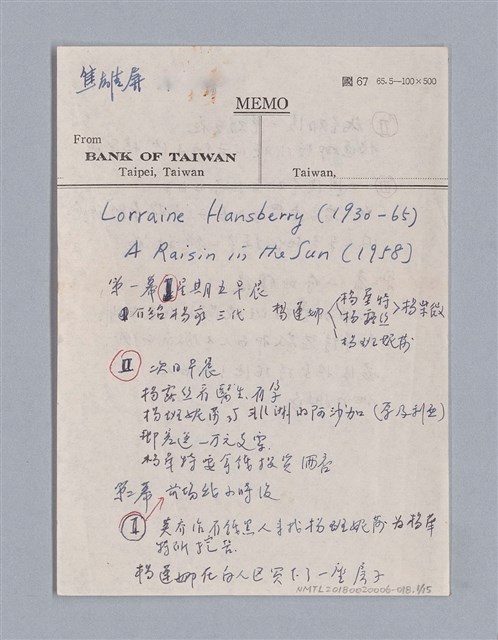 國67 65.5—100×500
MEMO
From
BANK OF TAIWAN
Taipei, Taiwan
Taiwan,
Lorraine Hansberry (1930-65)
A Raisin in the Sun (1958)
第一幕 I 星期五早晨
介紹楊家三代 楊蓮娜 楊華特 楊露絲 楊班妮莎
II 次日早晨
楊露絲看醫生有孕
楊班妮莎與非洲的阿沙加
郵差送一万元支票
楊華特要拿錢投資酒店
第二幕 當場 小時後
有錢黑人 找楊班妮莎為楊華
楊蓮娜在白人区買下了一座房子
NMTL20180020006-018. 1/15